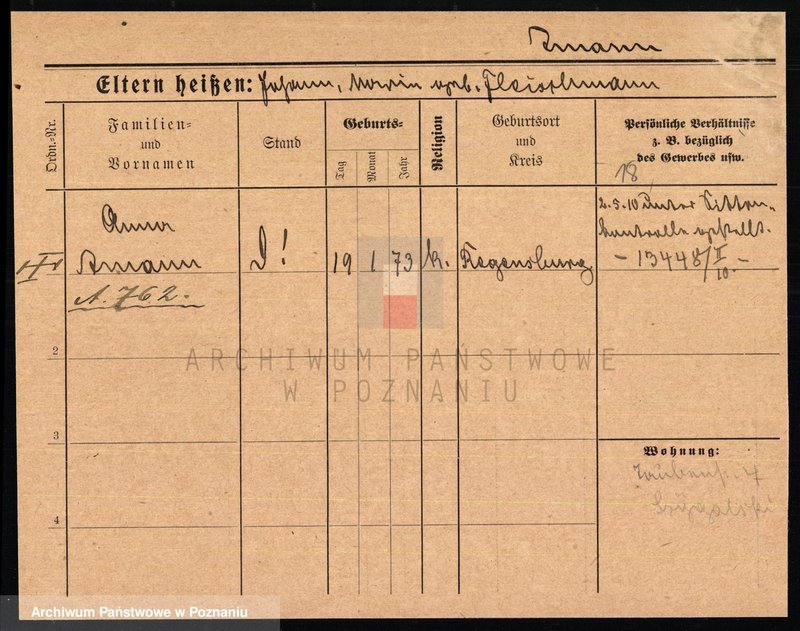 Amann
Eltern heißen: Johann, Maria geb. Fleischmann
Ordn.-Nr.
Familien-
und
Vornamen
Stand
Geburts-
Tag
Monat
Jahr
Religion
Geburtsort
und
Kreis
Persönliche Verhältnisse
z. B. bezüglich
des Gewerbes usw.
18
Anna
Amann
A. 762.
1
D!
19 1 73
k.
Regensburg
2.5.10 unter Sitten-
kontrolle gestellt.
- 13448/II
10. -
2
3
4
Wohnung:
Taubenst. 4
ARCHIWUM PAŃSTWOWE
W POZNANIU
Archiwum Państwowe w Poznaniu